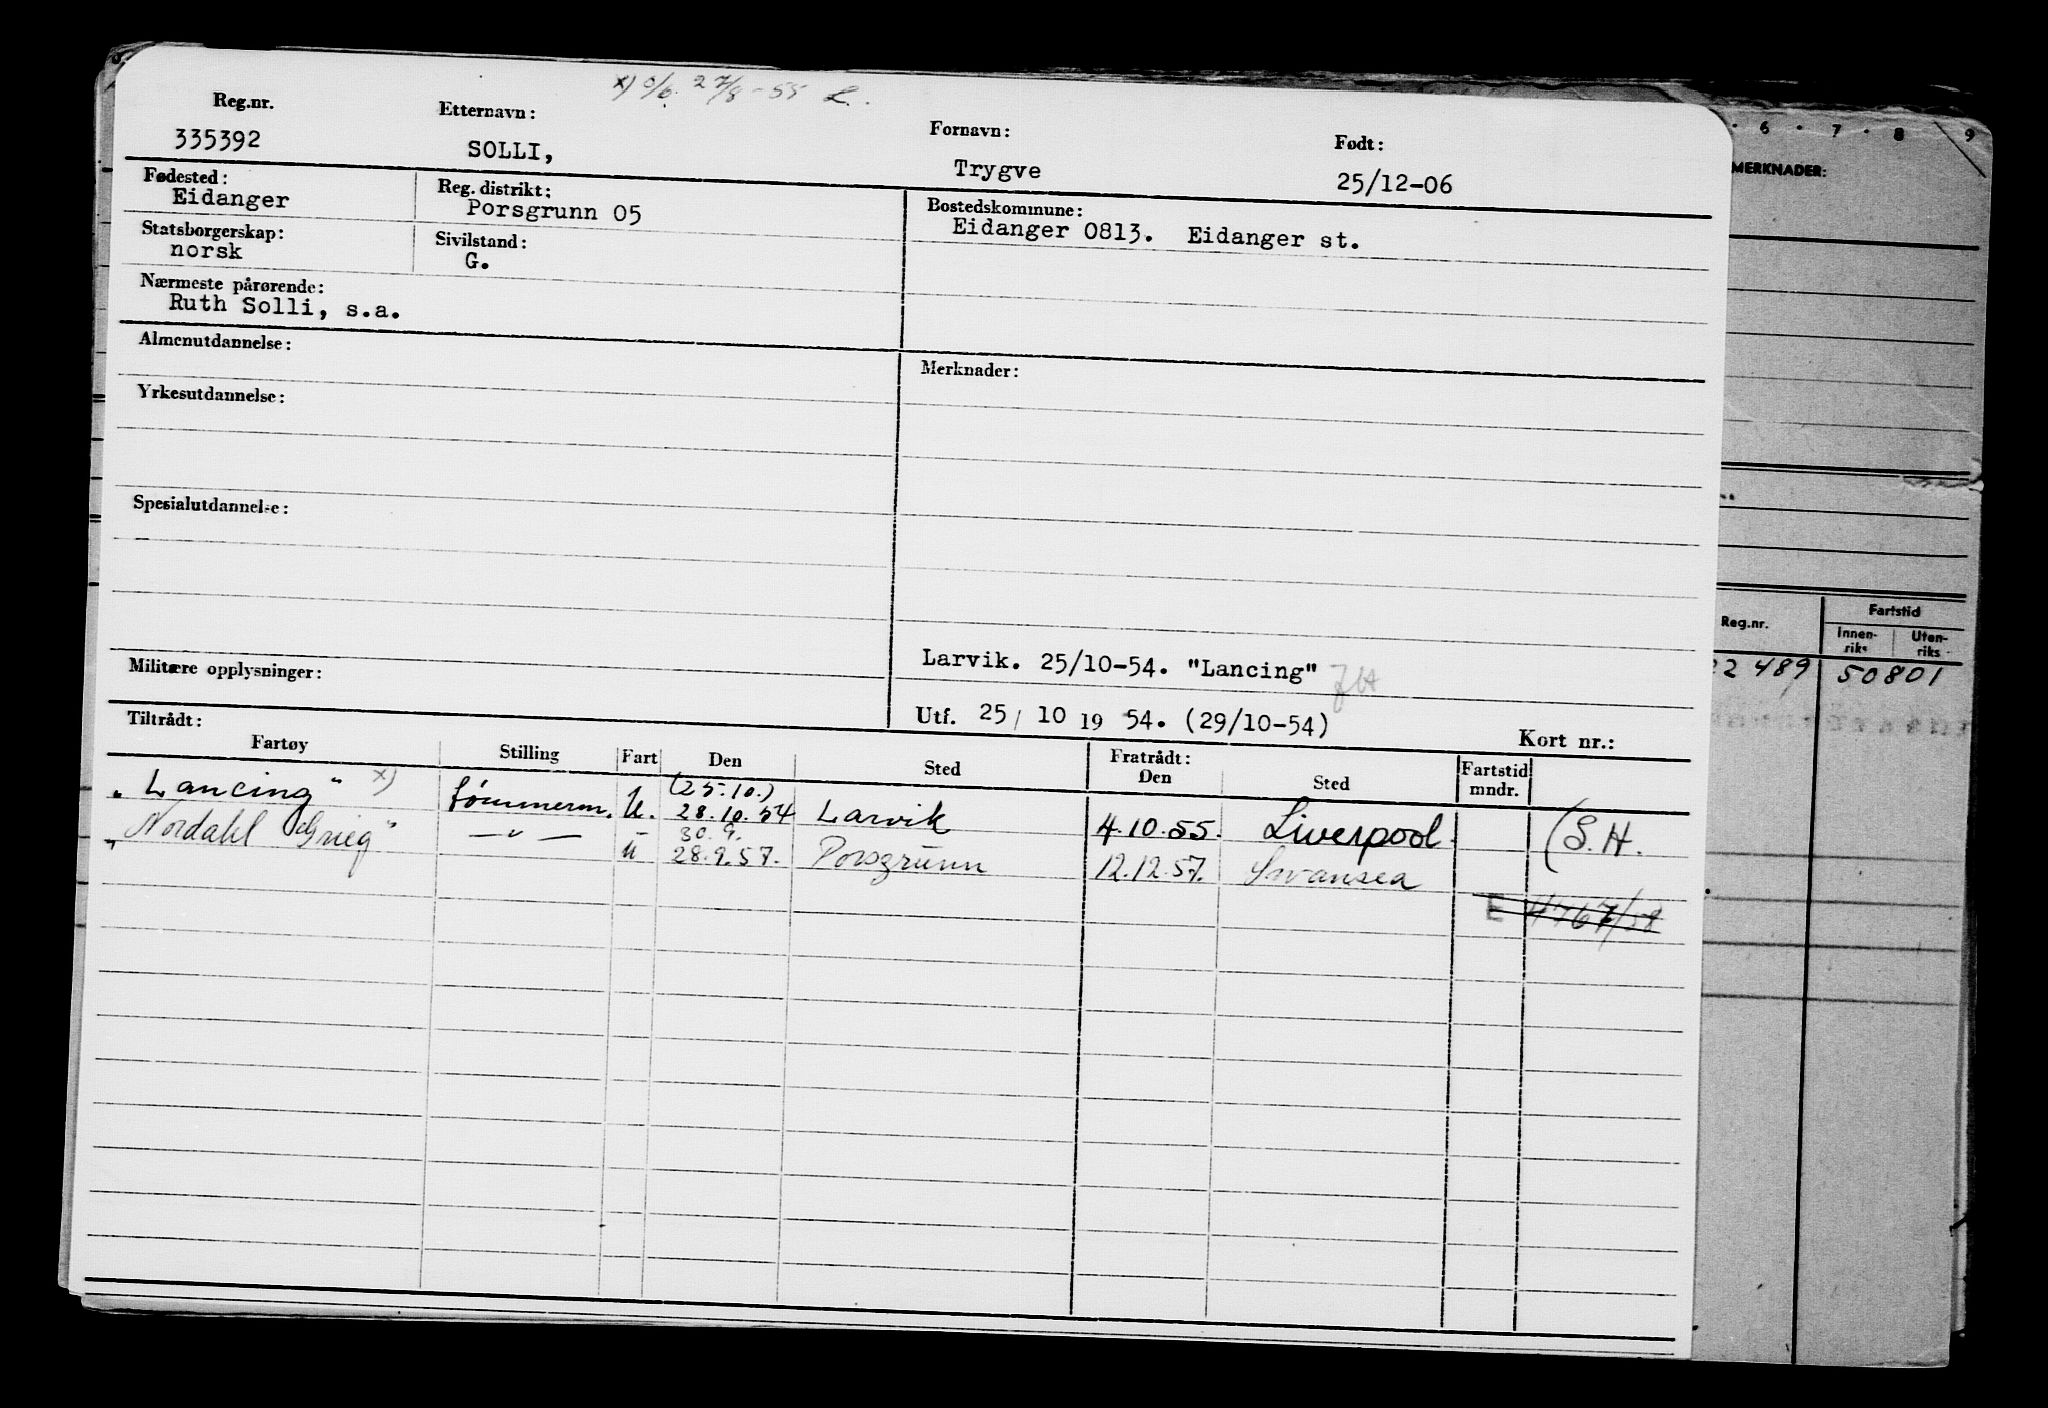 x) o/b. 27/8-55 L.
Reg.nr. Etternavn: Fornavn: Født:
335392 SOLLI, Trygve 25/12-06
Fødested: Reg. distrikt: Bostedskommune:
Eidanger Porsgrunn 05 Eidanger 0813. Eidanger st.
Statsborgerskap: Sivilstand:
norsk G.
Nærmeste pårørende:
Ruth Solli, s.a.
Almenutdannelse: Merknader:
Yrkesutdannelse:
Spesialutdannelse:
Larvik. 25/10-54. "Lancing"
Militære opplysninger:
Utf. 25/10 19 54. (29/10-54)
Tiltrådt: Kort nr.:
Fartøy Stilling Fart Den Sted Fratrådt: Den Sted Fartstid mndr.
(25.10.)
"Lancing" x) tömmerm. U. 28.10.54 Larvik 4.10.55. Liverpool. (S.H.
30.9.
"Nordahl Grieg" — " — U 28.9.57. Porsgrunn 12.12.57. Swansea
E 4767/58
6 . 7 . 8 9
MERKNADER:
Reg.nr. Fartstid
Innen-riks Uten-riks
22 489 50801